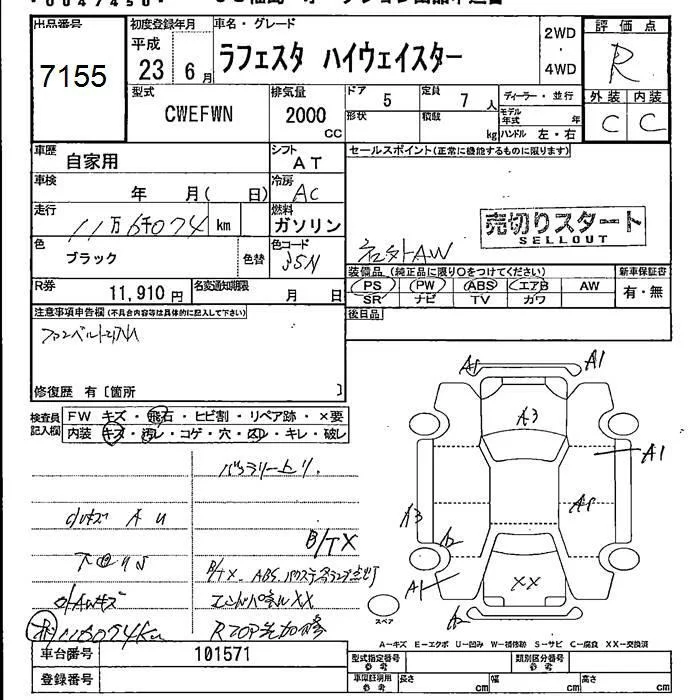 出品番号
7155
初度登録年月
平成
23 6月
車名・グレード
ラフェスタ ハイウェイスター
2WD
・
4WD
評価点
R
外装 内装
C C
型式
CWEFWN
排気量
2000
cc
ドア
5
定員
7 人
形状
積載
kg
ディーラー・並行
モデル年式 年
ハンドル 左・右
車歴
自家用
シフト
AT
セールスポイント(正常に機能するものに限ります)
車検
年 月( 日)
冷房
AC
走行
11万6千074 km
燃料
ガソリン
売切りスタート
SELLOUT
色
ブラック
色替
色コード
社外AW
装備品(純正品に限り○をつけてください)
新車保証書
PS PW ABS エアB AW
SR ナビ TV カワ
有・無
R券
11,910円
名変通知期限
月 日
後日品
注意事項申告欄(不具合内容等は具体的に記入して下さい)
修復歴 有〔箇所 〕
検査員記入欄
FW キズ・飛石・ヒビ割・リペア跡・×要
内装 キズ・汚レ・コゲ・穴・凹・キレ・破レ
バッテリー上り.
小キズ A U
B/TX
B/TX. ABS.パワステ各ランプ点灯
AWキズ
エンドパネルXX
116074Km
A1
A1
A3
A1
A3
A2
A1
XX
スペア
A=キズ E=エクボ U=凹み W=補修跡 S=サビ C=腐食 XX=交換済
車台番号
101571
登録番号
型式指定番号
参考
類別区分番号
参考
車庫証明用
参考
長さ cm
幅 cm
高さ cm